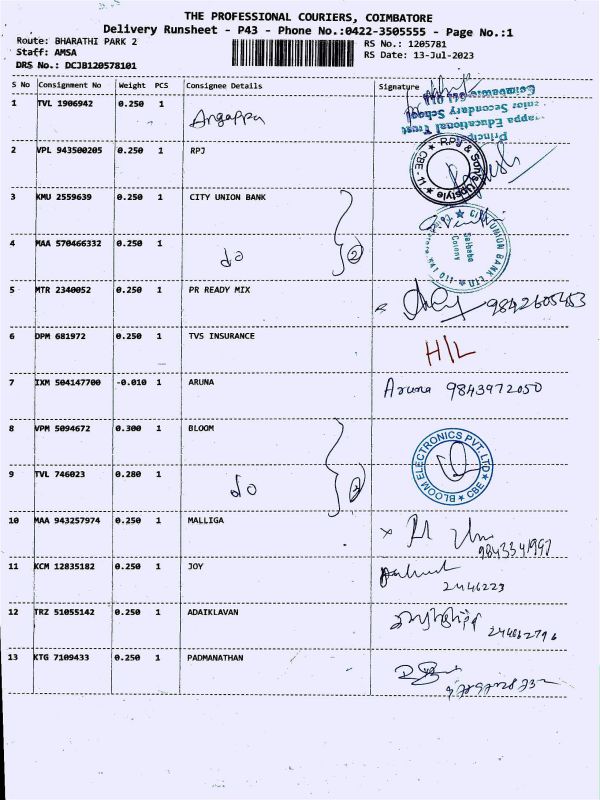 THE PROFESSIONAL COURIERS, COIMBATORE
Delivery Runsheet - P43 - Phone No.:0422-3505555 - Page No.:1
Route: BHARATHI PARK 2
RS No.: 1205781
Staff: AMSA
RS Date: 13-Jul-2023
DRS No.: DCJB120578101
S No Consignment No Weight PCS Consignee Details Signature
1 TVL 1906942 0.250 1 Angappa
Coimbatore-641 011
Senior Secondary School
Angappa Educational Trust
Principal
2 VPL 943500205 0.250 1 RPJ
RPJ & Sons Upstyle ★ CBE - 11 ★
3 KMU 2559639 0.250 1 CITY UNION BANK
4 MAA 570466332 0.250 1 do 2
CITY UNION BANK LTD
Saibaba
Colony
641 011
5 MTR 2340052 0.250 1 PR READY MIX 9842605453
6 DPM 681972 0.250 1 TVS INSURANCE H/L
7 IXM 504147700 -0.010 1 ARUNA Aruna 9843972050
8 VPM 5094672 0.300 1 BLOOM
BLOOM ELECTRONICS PVT. LTD ★ CBE ★
9 TVL 746023 0.280 1 do 2
10 MAA 943257974 0.250 1 MALLIGA
9843341997
11 KCM 12835182 0.250 1 JOY
2446223
12 TRZ 51055142 0.250 1 ADAIKLAVAN
13 KTG 7109433 0.250 1 PADMANATHAN